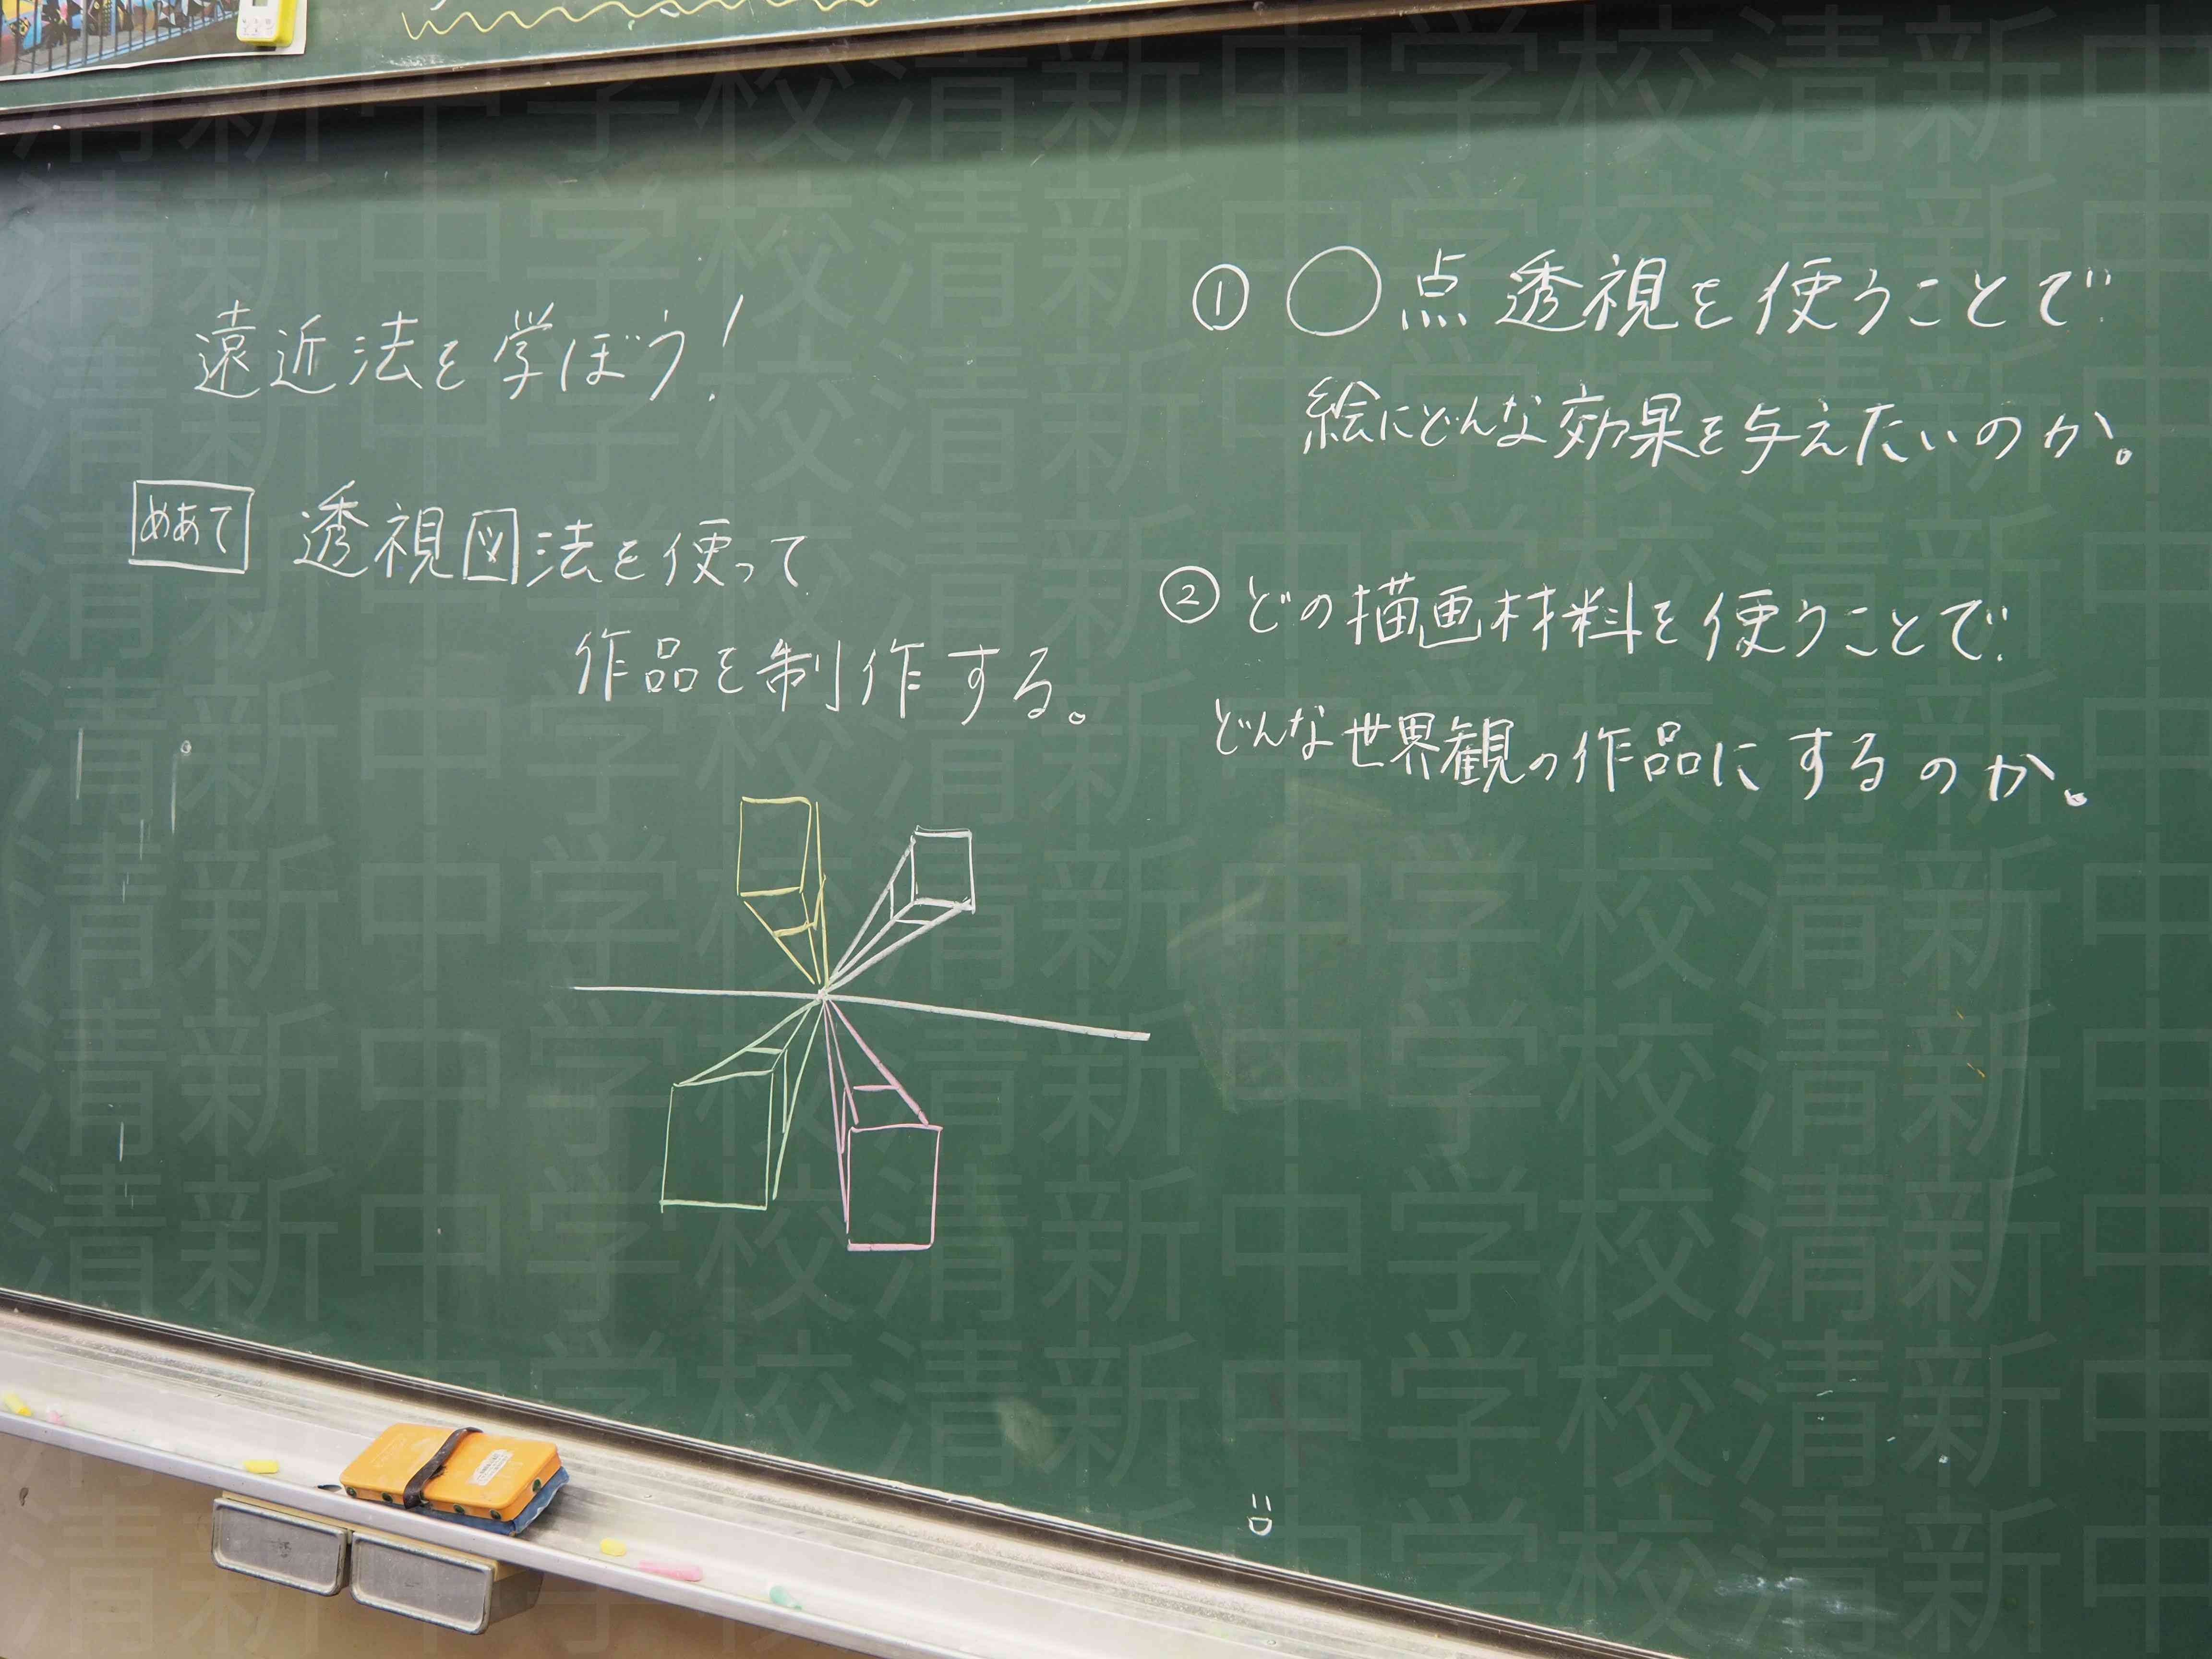 遠近法を学ぼう!
めあて 透視図法を使って
作品を制作する。
① ○点透視を使うことで
絵にどんな効果を与えたいのか。
② どの描画材料を使うことで
どんな世界観の作品にするのか。
清新中学校清新中学校清新中